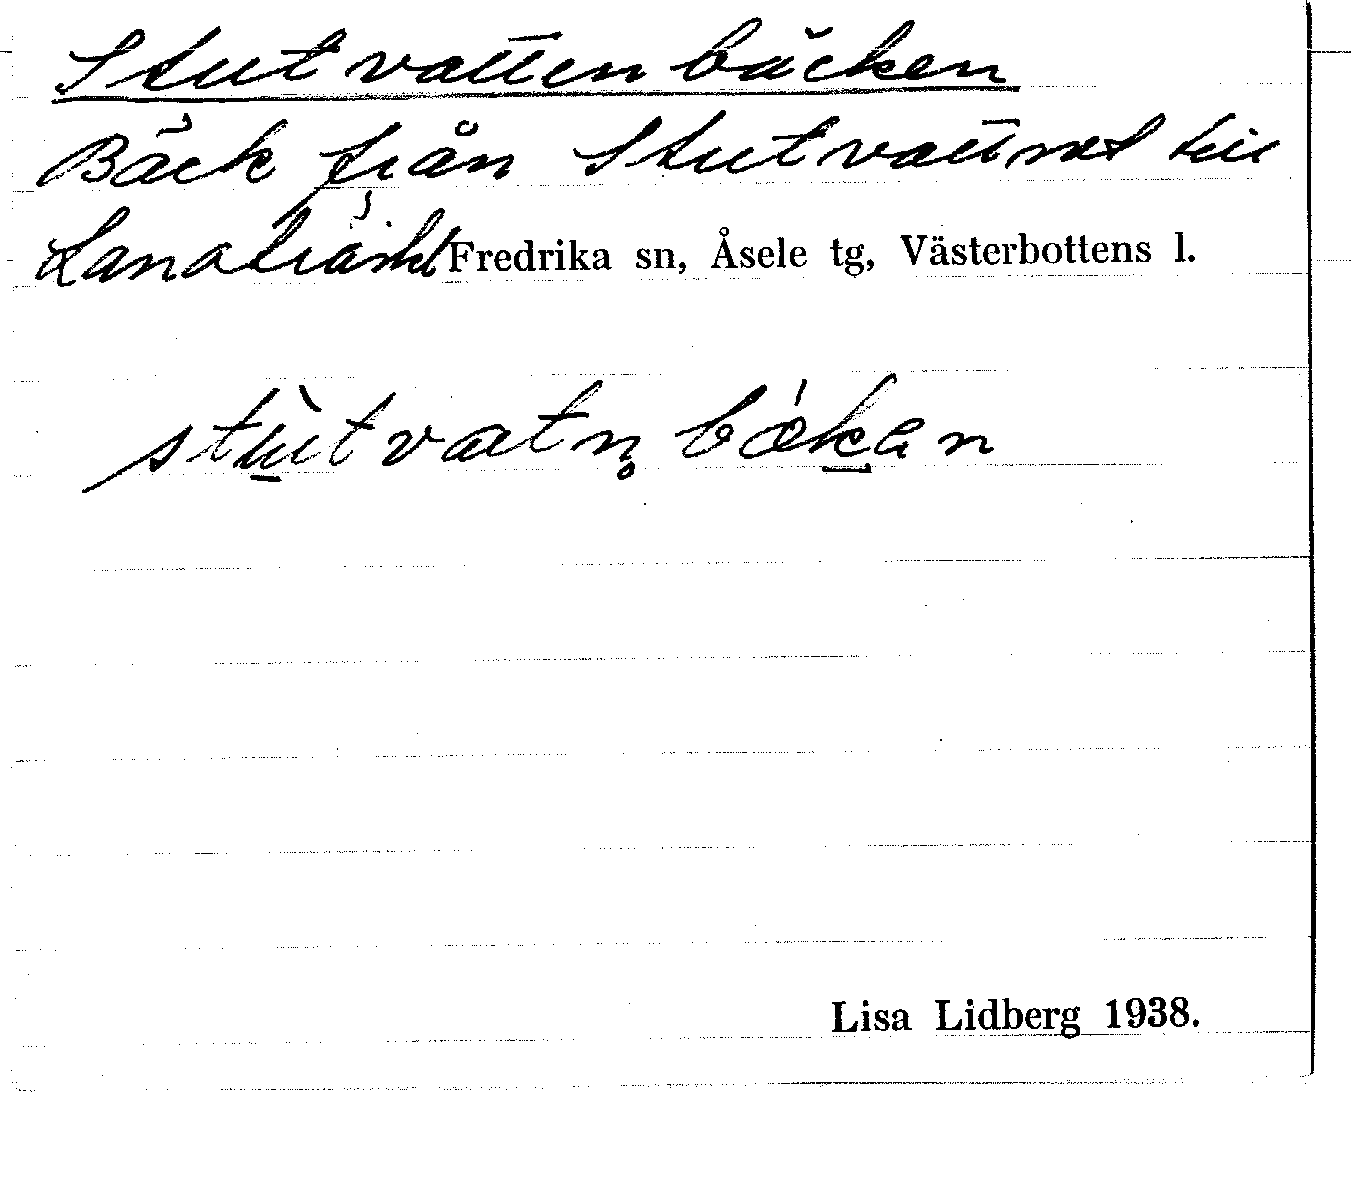 Stutvattenbäcken
Bäck från Stutvattnet till
Lanaträsket Fredrika sn, Åsele tg, Västerbottens l.
stù̲tvatn̥bǽk̲an
Lisa Lidberg 1938.